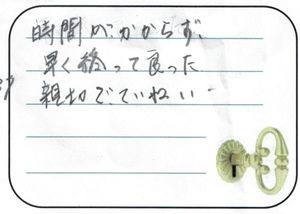 時間がかからず、
早く終って良った
親切でていねい